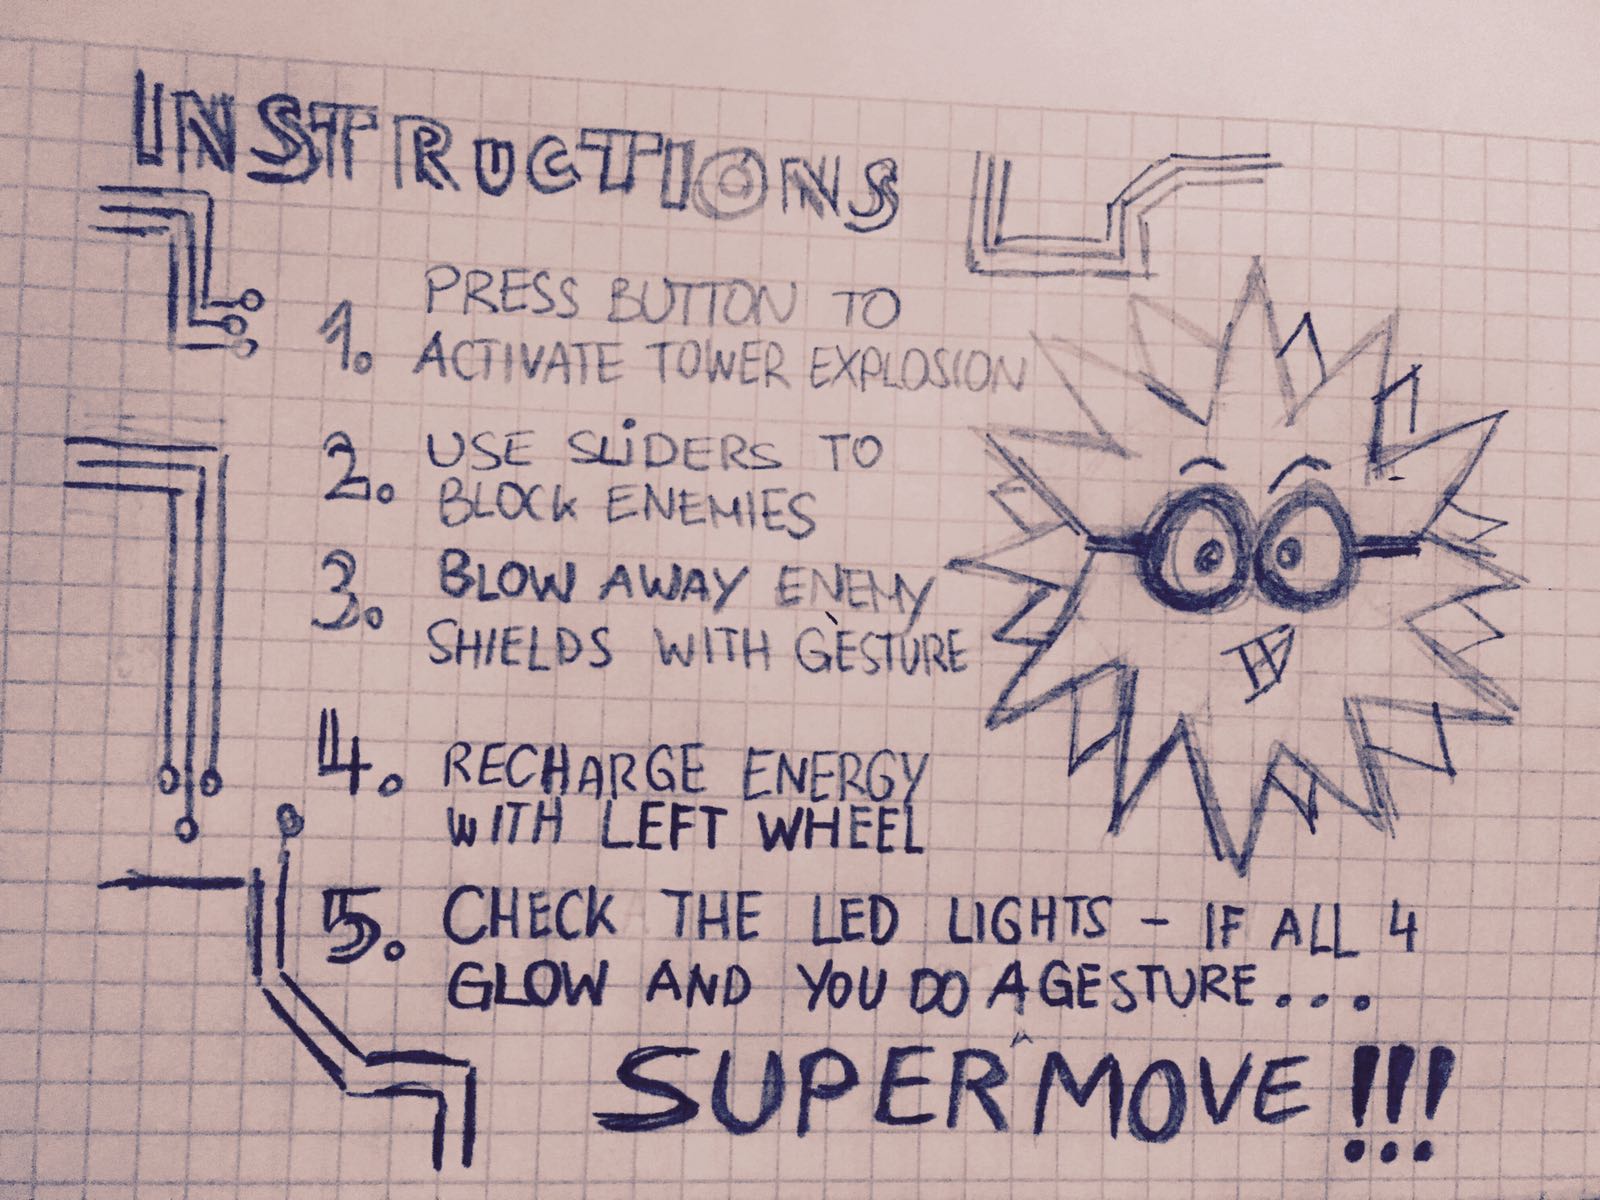 INSTRUCTIONS
1. PRESS BUTTON TO
ACTIVATE TOWER EXPLOSION
2. USE SLiDERS TO
BLOCK ENEMIES
3. BLOW AWAY ENEMY
SHIELDS WITH GESTURE
4. RECHARGE ENERGY
WITH LEFT WHEEL
5. CHECK THE LED LIGHTS - IF ALL 4
GLOW AND YOU DO A GESTURE...
SUPER MOVE!!!